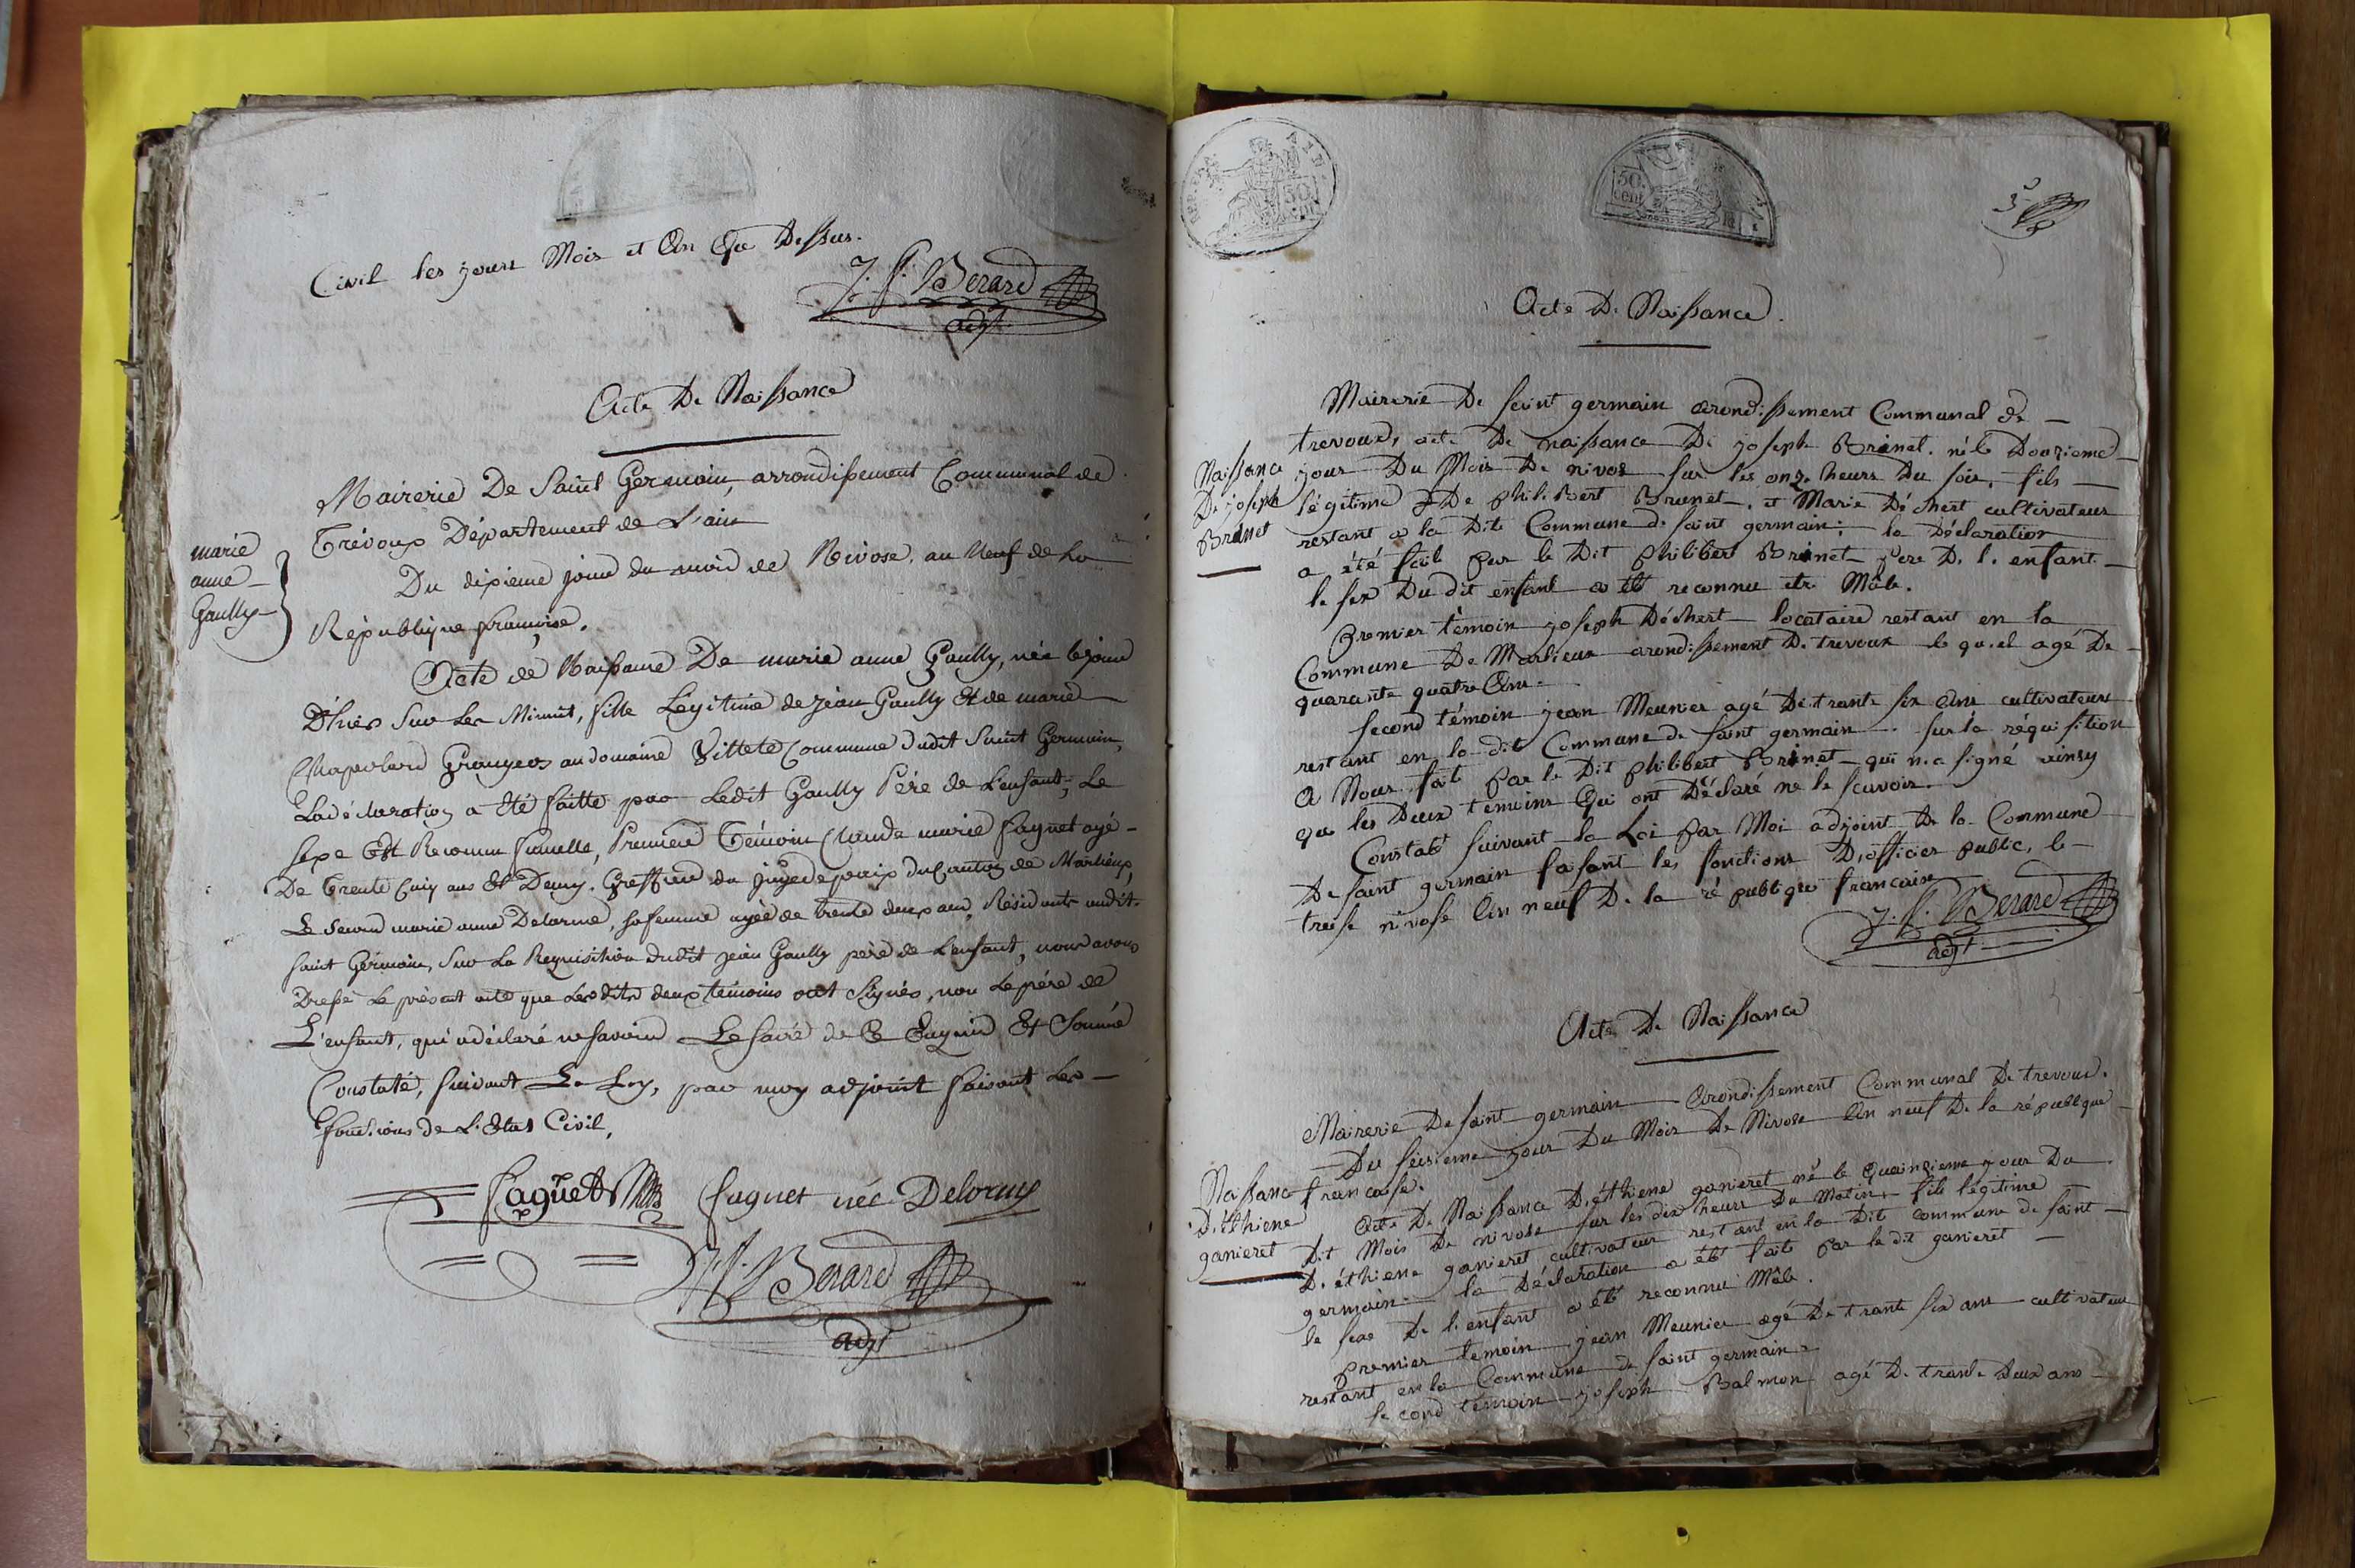 Civil les jours Mois et An Que Dessus.
J. f. Berard
adjt
Acte De Naissance
Mairerie De Saint Germain, arrondissement Communal de
Trévoux Département de L'ain
marie
anne
Gaully
Du dixieme jour du mois de Nivose, an Neuf de La
République francaise.
Acte de Naissance De marie anne Gaully, née le jour
D'hier Sur Les Minuit, fille Légitime de jean Gaully Et de marie
Chapolard Grangers au domaine Vittete Commune dudit Saint Germain,
La déclaration a Eté faitte par Ledit Gaully Pére de L'enfant, Le
sexe Est Reconnu fumelle, Premiere Témoin Claude marie faguet agé
De Trente Cinq ans Et Demy. Greffier du juge de paix du Canton de Marlieux,
Le Second marie anne Delorme, sa femme agée de trente deux ans, Résidants audit
Saint Germain, Sur La Requisition dudit jean Gaully pére de L'enfant, nous avons
Dressé Le présent acte que Lesdits deux témoins ont Signés, non Le pére de
L'enfant, qui a déclaré ne Savoir Le faire de Ce Enquis Et Sommé
Constaté, suivant La Loy, par moy adjoint faisant Les
fonctions de L'Etat Civil,
faguet faguet née Delorme
J. f. Berard
adjt
REP. FRA.
50
cent
50.
cent
3
Acte De Naissance.
Mairerie De saint germain arondissement Communal de
trevoux, acte De naissance De joseph Brünet. né le Douzieme
Naissance
De joseph
Brunet
jour Du Mois De nivose sur les onze heurs Du soir, fils
légitime De philiBert Brunet, et Marie Déchert cultivateur
restant a la Dite Commune de saint germain; la Déclaration
a été fait par le Dit philibert Brunet pere De l. enfant.
le sex Du dit enfant a été reconnu etre Mâle.
Premier témoin joseph Déchert locataire restant en la
Commune De Marlieux arondissement De trevoux le quel agé De
quarante quatre Ans.
second témoin jean Meunier agé De trante six Ans cultivateur
restant en la dite Commune de saint germain. sur la réquisition
a Nous fait par le Dit philibert Brunet qui n.a signé ainsy
que les Deux temoins Qui ont Déclaré ne le scavoir.
Constaté suivant la Loi par Moi adjoint De la Commune
De saint germain faisant les fonctions D.officier public, le
treise nivose An neuf De la république francaise
J. f. Berard
adjt
Acte De Naissance
Mairerie De saint germain Arondissement Communal De trevoux.
Du seisieme jour Du Mois De Nivose An neuf De la république
francaise.
Naissance
D.éthiene
ganieret
Acte De Naissance D.éthiene ganieret né le Quainsieme jour Du
Dit Mois De nivose sur les dix heurs Du Matin, fils légitime
D.éthiene ganieret cultivateur restant en la Dite commune de saint
germain. la Déclaration a été faite par le dit ganieret
le sexe De l.enfant a été reconnu Mâle.
premier temoin jean Meunier agé De trante six ans cultivateur
restant en la Commune de saint germain.
second témoin joseph Balmon agé De trante Deux ans